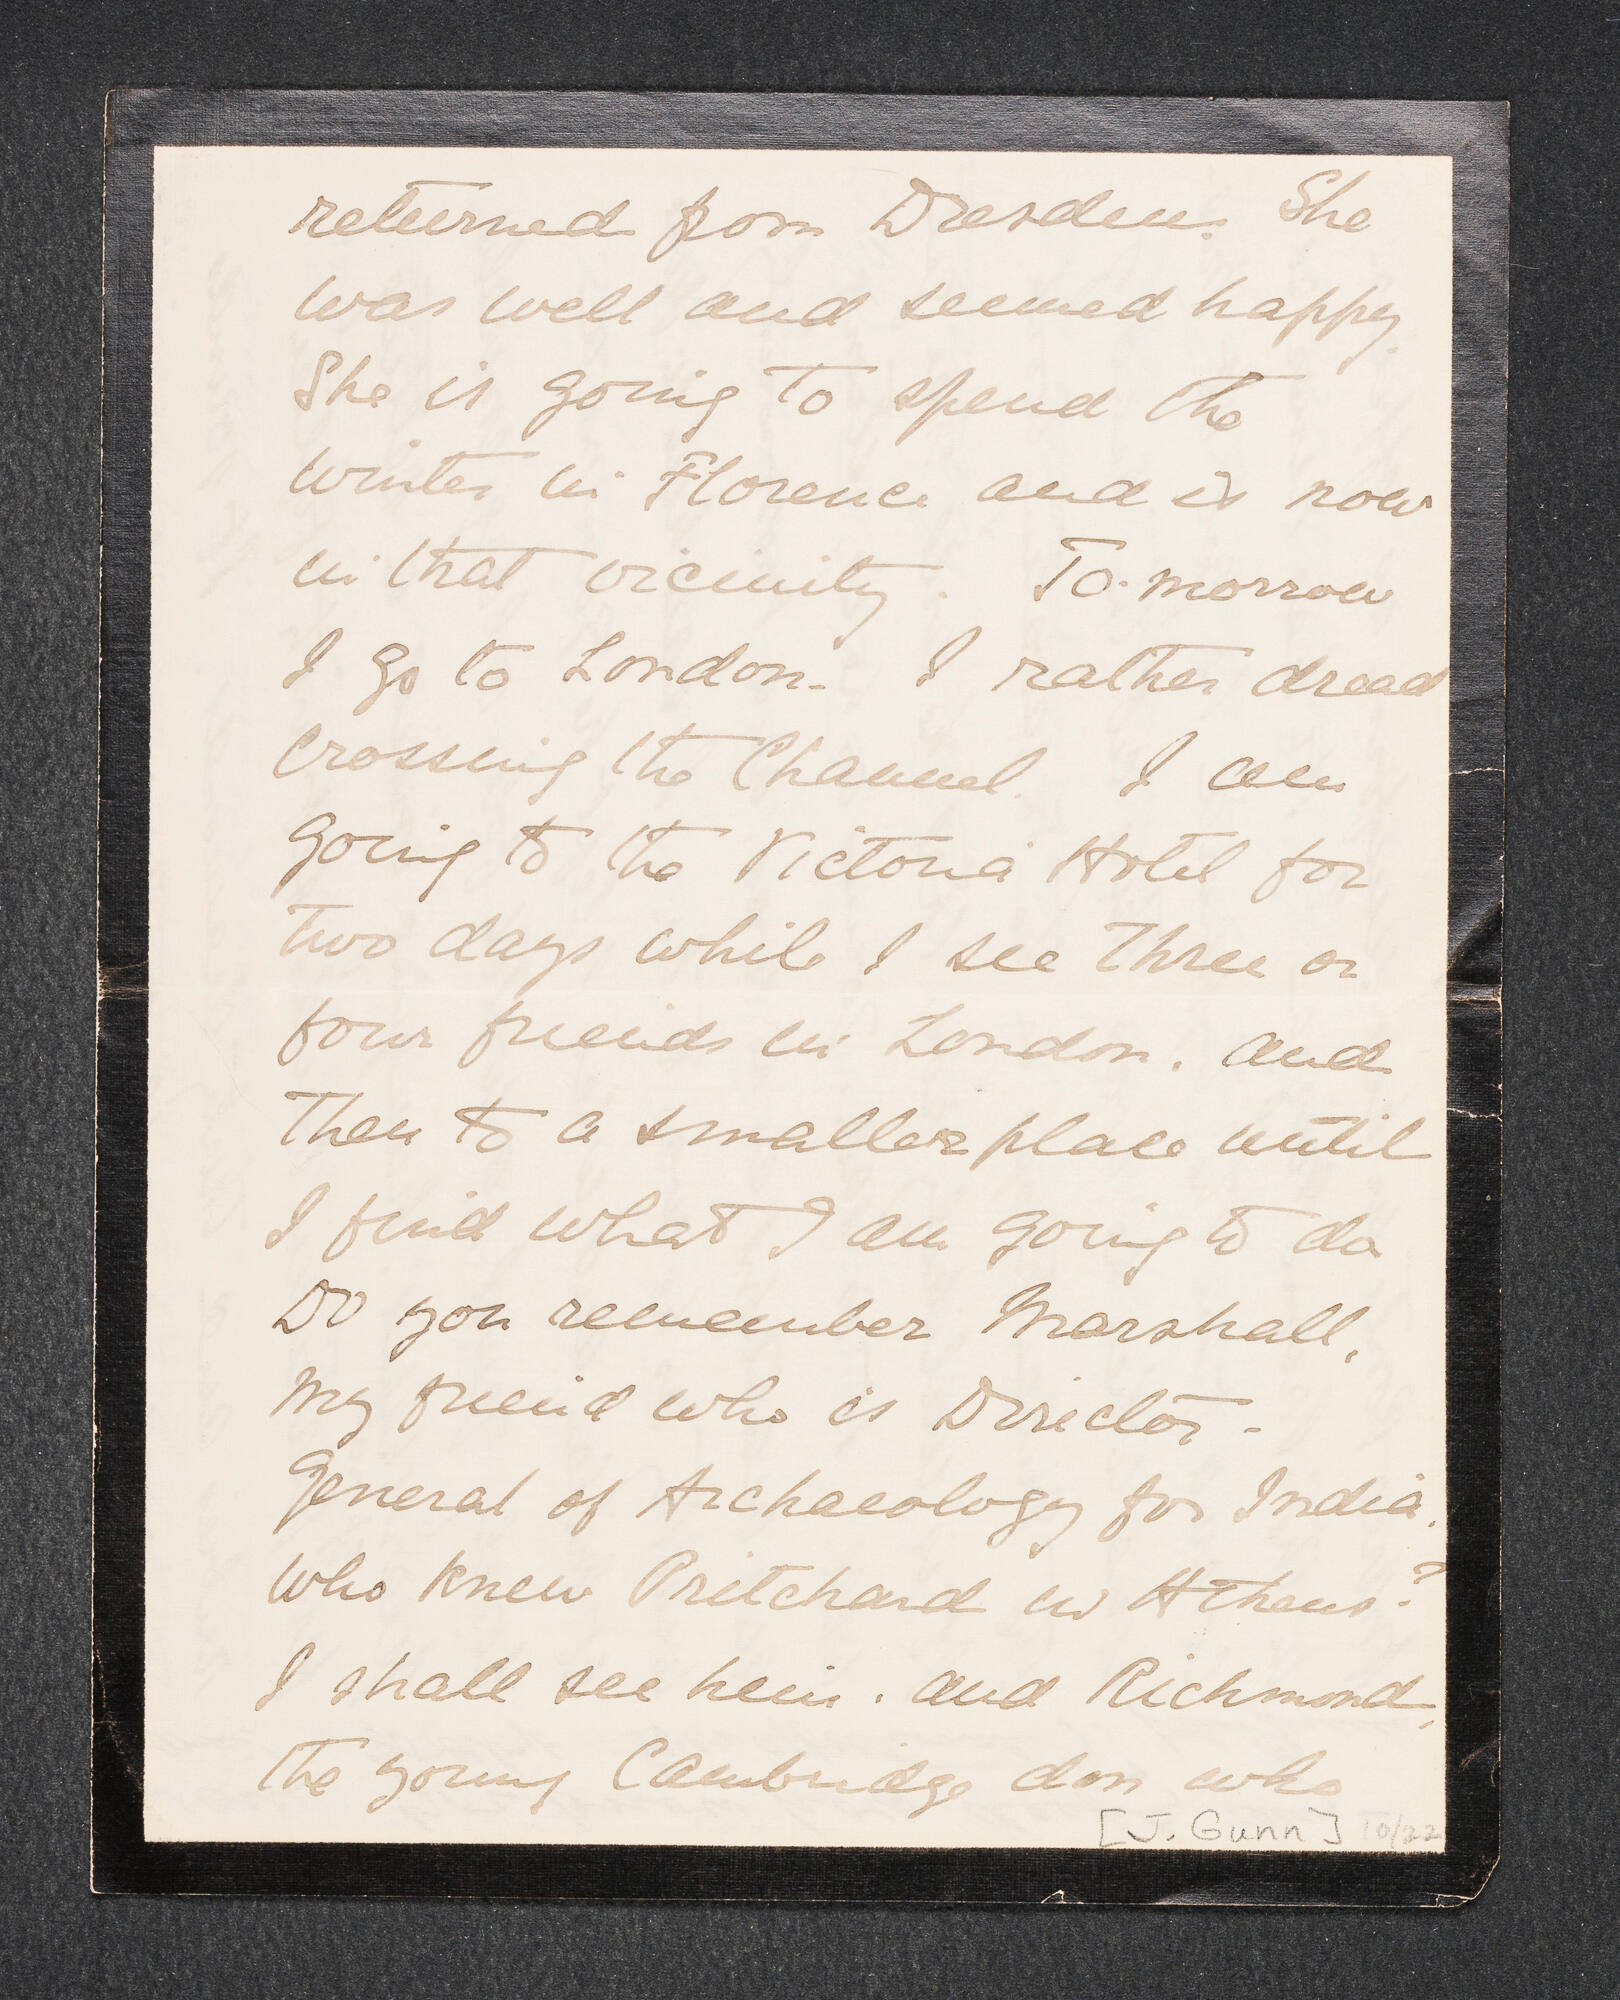 returned from Dresden. She
was well and seemed happy.
She is going to spend the
winter in Florence and is now
in that vicinity. To-morrow
I go to London. I rather dread
crossing the Channel. I am
going to the Victoria Hotel for
two days while I see three or
four friends in London. and
then to a smaller place until
I find what I am going to do
Do you remember Marshall,
my friend who is Director-
General of Archaeology for India,
who knew Pritchard in Athens?
I shall see him. and Richmond,
the young Cambridge don who
[J. Gunn] 10/22